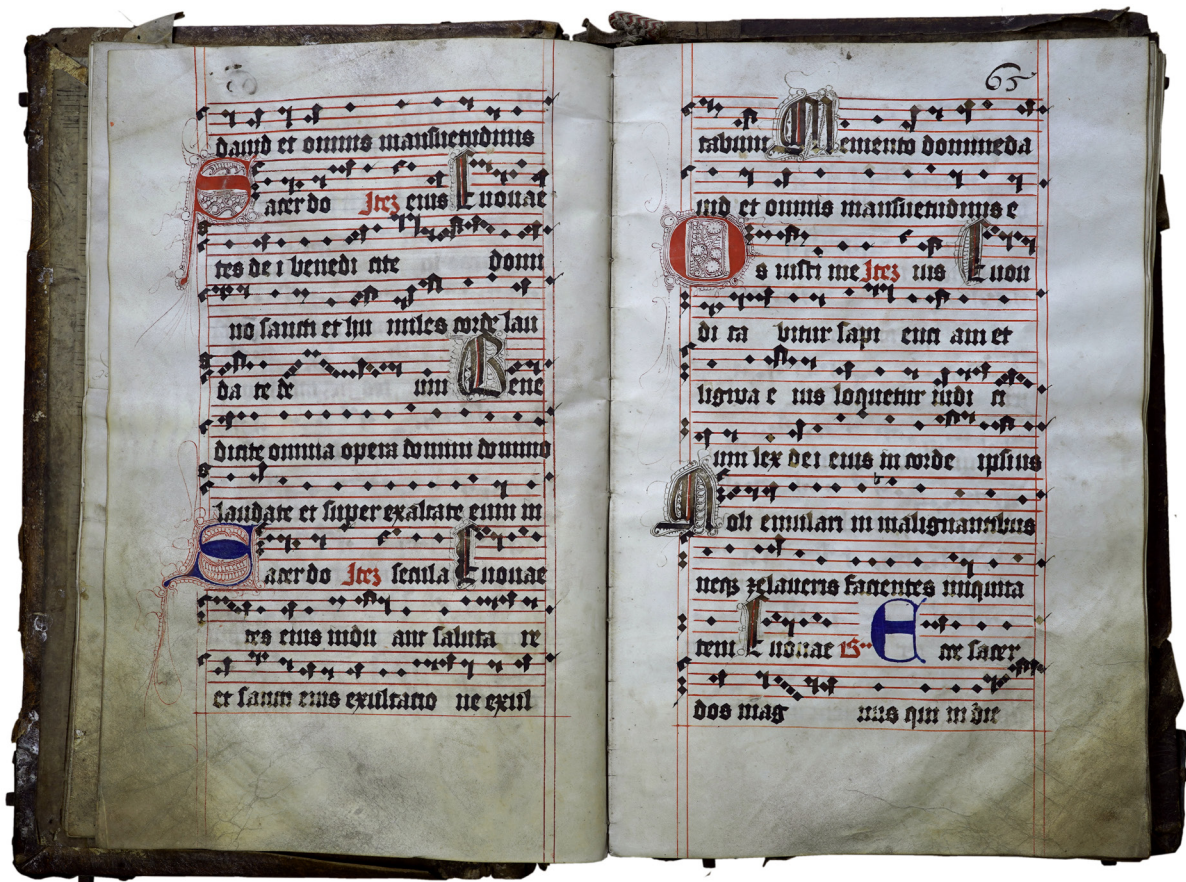 dauid et omnis mansuetudinis
Sacerdo Itez eius Euouae
tes de i benedi cite domi
no sancti et hu miles corde lau
da te de um Bene
dicite omnia opera domini domino
laudate et super exaltate eum in
Sacerdo Itez secula Euouae
tes eius indu ant saluta re
et sancti eius exultatio ne exul
65
tabunt Memento domine da
uid et omnis mansuetudinis e
Os iusti me Itez ius Euou
di ta bitur sapi enci am et
ligwa e ius loquetur iudi ci
um lex dei eius in corde ipsius
Noli emulari in malignantibus
neqz zelaueris facientes iniquita
tem Euouae Ecce sacer
dos mag nus qui in die